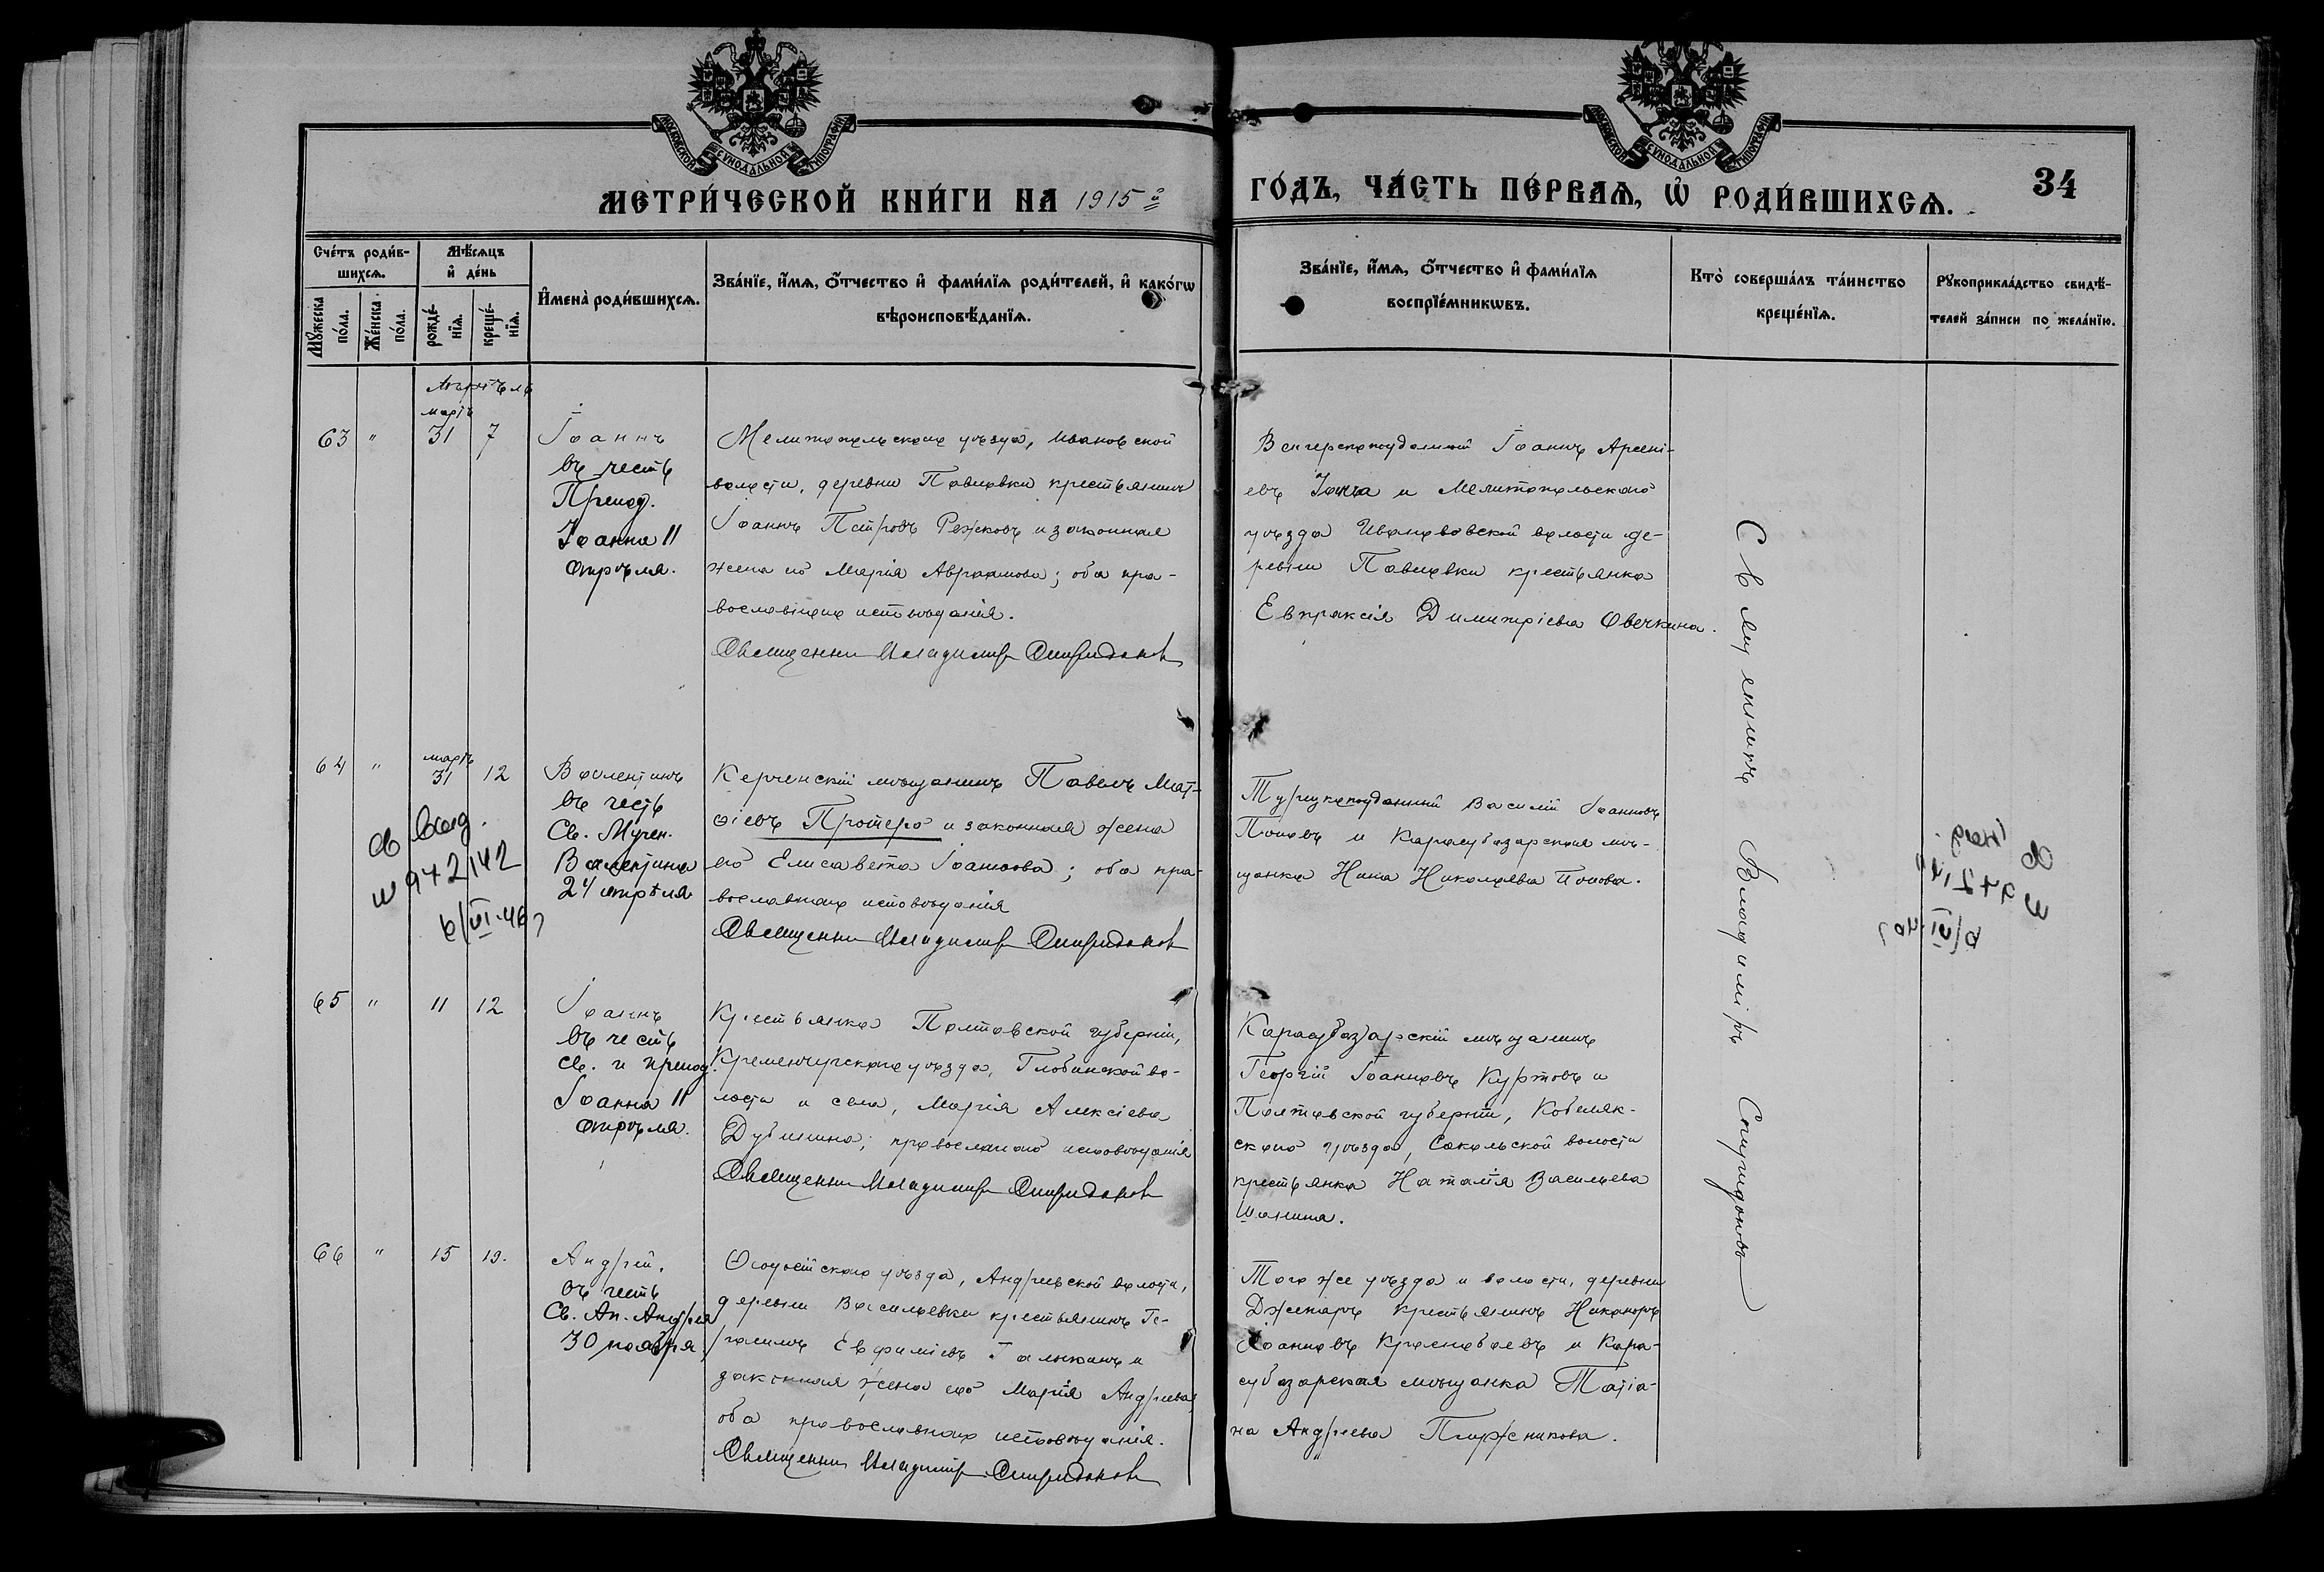 МОСКОВСКОЙ СУНОДАЛЬНОЙ ТИПОГРАФІИ
МОСКОВСКОЙ СУНОДАЛЬНОЙ ТИПОГРАФІИ
МЕТРИ́ЧЕСКОЙ КНИ́ГИ НА 1915й
ГО́ДЪ, ЧА́СТЬ ПЕ́РВАѦ, Ѡ҆ РОДИ́ВШИХСѦ.
34
Сче́тъ роди́в-
шихсѧ.
Мꙋ́жеска по́ла.
Же́нска по́ла.
Мѣ́сѧцъ
и҆ де́нь
рожде́-
нїѧ.
креще́-
нїѧ.
И҆мена̀ роди́вшихсѧ.
Зва́нїе, и҆́мѧ, ѻ҆́тчество и҆ фами́лїѧ роди́телей, и҆ како́гѡ
вѣроисповѣ́данїѧ.
Зва́нїе, и҆́мѧ, ѻ҆́тчество и҆ фами́лїѧ
воспрїе́мникѡвъ.
Кто̀ соверша́лъ та́инство
креще́нїѧ.
Рꙋкоприкла́дство свидѣ́-
телей за́писи по жела́нїю.
Апрѣль
мартъ
63 " 31 7
Іоаннъ
въ честь
Препод.
Іоанна 11
апрѣля.
Мелитопольскаго уѣзда, Ивановской
волости, деревни Павловки крестьянинъ
Іоаннъ Петровъ Режковъ и законная
жена его Марія Авраамова; оба пра-
вославнаго исповѣданія.
Священникъ Владимиръ Спиридоновъ
Венгерскоподданный Іоаннъ Арсені-
евъ и Мелитопольскаго
уѣзда Ивановской волости де-
ревни Павловки крестьянка
Евпраксія Димитріева Овечкина.
мартъ
64 " 31 12
Валентинъ
въ честь
Св. Мучен.
Валентина
24 апрѣля
Керченскій мѣщанинъ Павелъ Мат-
ѳіевъ Протеро и законная жена
его Елисавета Іоаннова; оба пра-
вославнаго исповѣданія
Священникъ Владимиръ Спиридоновъ
Турецкоподданный Василій Іоанновъ
Поповъ и Карасубазарская мѣ-
щанка Нина Николаева Попова.
св выд.
942142
6/VI-46
65 " 11 12
Іоаннъ
въ честь
св. и препод.
Іоанна 11
апрѣля.
Крестьянка Полтавской губерніи,
Кременчугскаго уѣзда, Глобинской во-
лости и села, Марія Алексіева
Дубинина; православнаго исповѣданія
Священникъ Владимиръ Спиридоновъ
Карасубазарскій мѣщанинъ
Георгій Іоанновъ Куртовъ и
Полтавской губерніи, Кобеляк-
скаго уѣзда, Сокольской волости
крестьянка Наталія Васильева
Шанина.
66 " 15 19.
Андрей.
въ честь
Св. Ап. Андрея
30 ноября.
Ѳеодосійскаго уѣзда, Андреевской волости,
деревни Васильевки крестьянинъ Ге-
расимъ Евфиміевъ Галыкинъ и
законная жена его Марія Андреева,
оба православнаго исповѣданія.
Священникъ Владимиръ Спиридоновъ
Того же уѣзда и волости, деревни
крестьянинъ Никаноръ
Іоанновъ Краснобаевъ и Кара-
субазарская мѣщанка Татіа-
на Андреева
Священникъ Владиміръ Спиридоновъ